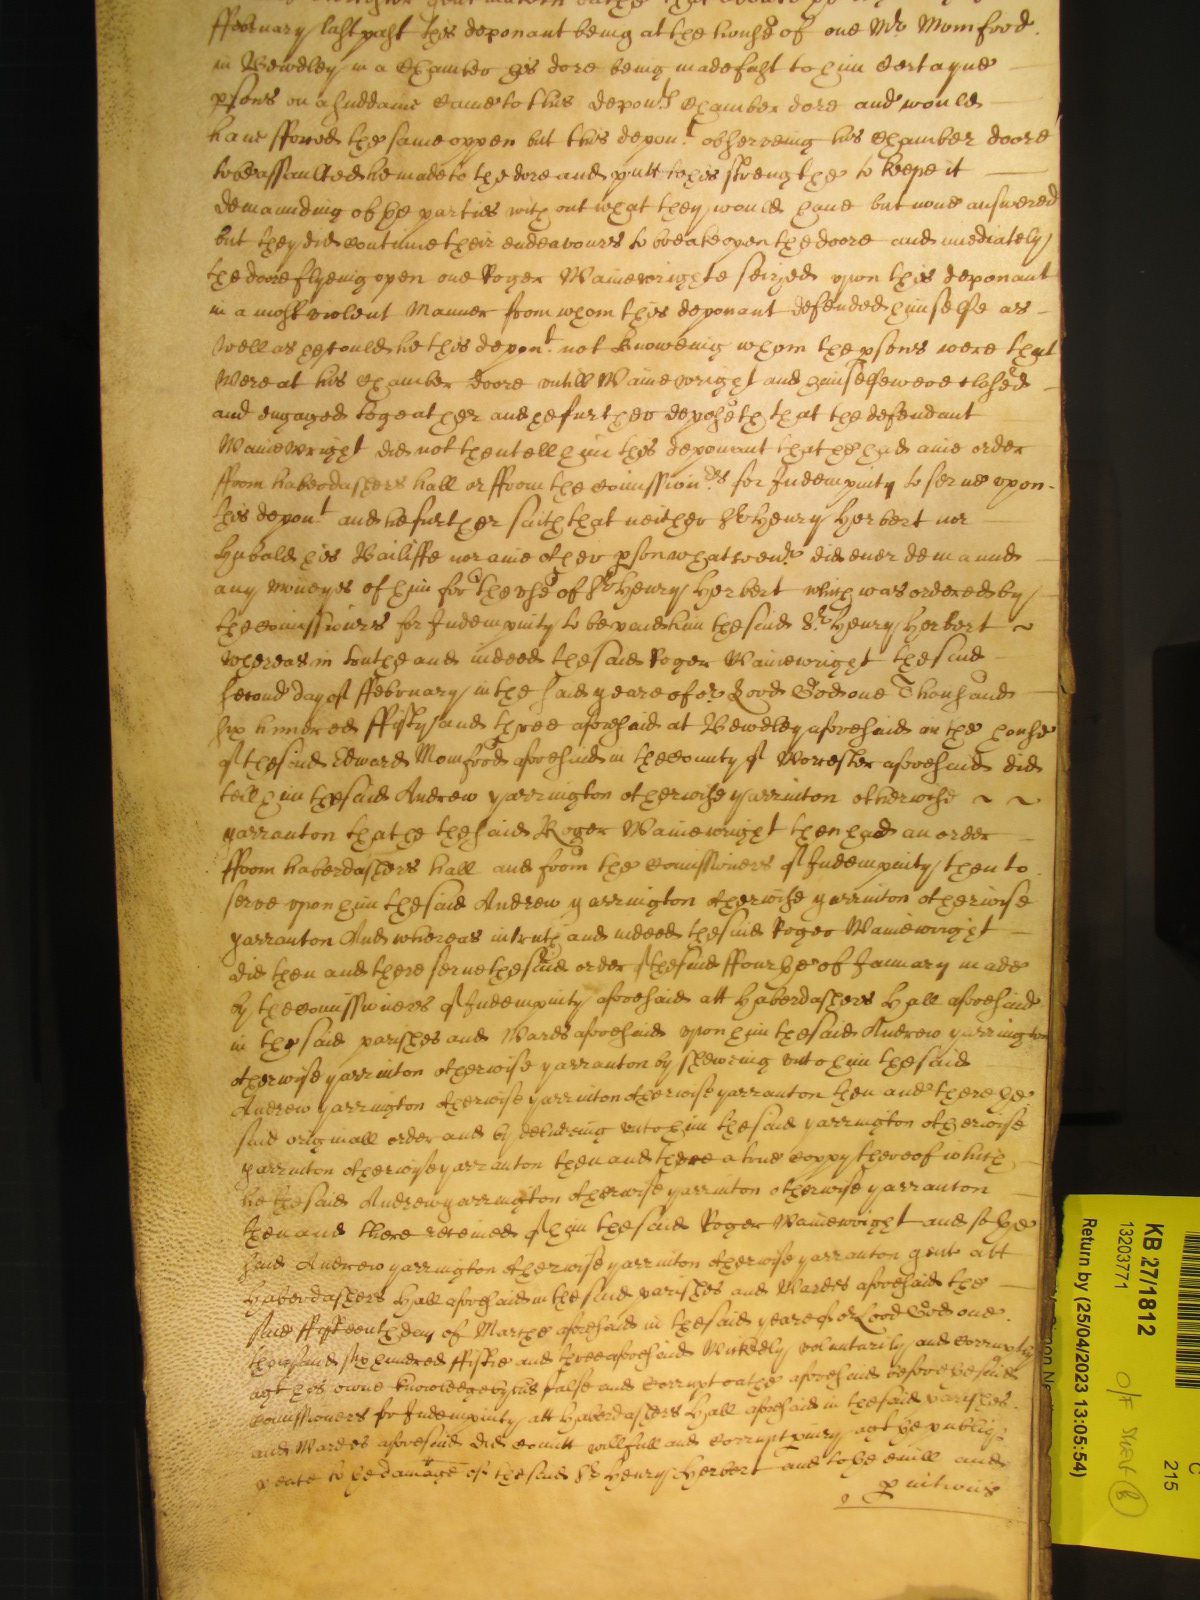 ffebruary last past this deponant being at the house of one Mr. Momford.
in Bewdley in a Chamber his dore being made fast to him Certayne
psons on a suddaine Came to this depont. Chamber dore and would
have fforced the same oppen but this depont. observeing his Chamber doore
to be assaulted he made to the dore and putt to his strengthe to keepe it
demaunding of the parties with out what they would have but none answered
but they did continue their endeavours to breake open the doore and imediately
the doore flyeing open one Roger Wainewrighte seized upon this deponant
in a most violent Manner from whom this deponant defended himselfe as
well as he could he this depont. not knoweing whom the psons were that
were at his Chamber doore untill Wainewright and himselfe were closed
and engaged togeather and he further deposeth that the defendant
Wainewright did not then tell him this deponant that he had anie order
ffrom haberdashers hall or ffrom the comissionrs for Indempnity to serve upon
this depont and he further saith that neither Sr Henry Herbert nor
his Bailiffe nor anie other pson whatsoever did ever demaund
any moneyes of him for the use of Sr Henry Herbert which was ordered by
the comissioners for Indempnity to be paid him the said Sr. Henry Herbert ~
whereas in truthe and indeed the said Roger Wainewright the said
second day of ffebruary in the said yeare of or Lord God one Thousand
six hundred ffifty and three aforesaid at Bewdley aforesaid in the house
of the said Edward Momford aforesaid in the County of Worcester aforesaid did
tell him the said Andrew yarrington otherwise yarrinton otherwise ~ ~
yarranton that he the said Roger Wainewright then had an order
ffrom haberdashers hall and from the comissioners of Indempnity then to
serve upon him the said Andrew yarrington otherwise yarrinton otherwise
yarranton And whereas in truth and indeed the said Roger Wainewright
did then and there serve the said order of the said ffourthe of January made
by the comissioners of Indempnity aforesaid att Haberdashers Hall aforesaid
in the said parishes and Wards aforesaid upon him the said Andrew yarrington
otherwise yarrinton otherwise yarranton by shewing unto him the said
Andrew yarrington otherwise yarrinton otherwise yarranton then and there the
said originall order and by delivering unto him the said yarrington otherwise
yarrinton otherwise yarranton then and there a true coppy thereof which
he the said Andrew yarrington otherwise yarrinton otherwise yarranton
then and there received of him the said Roger Wainewright and so the
said Andrew yarrington otherwise yarrinton otherwise yarranton gent att
Haberdashers Hall aforesaid in the said parishes and Wardes aforesaid the
said ffifteenth day of Marche aforesaid in the said yeare of or Lord God one
thousand six hundred ffiftie and three aforesaid Wickedly voluntarily and corruptly
agt his owne knowledge by his false and corrupt oathe aforesaid before the said
comissioners for Indempnity att Haberdashers Hall aforesaid in the said parishes
and Wardes aforesaid did comitt willfull and corrupt piury agt the publiq
peace to the damage of the said Sr Henry Herbert and to the evill and
KB 27/1812
13203771
Return by (25/04/2023 13:05:54)
C
215